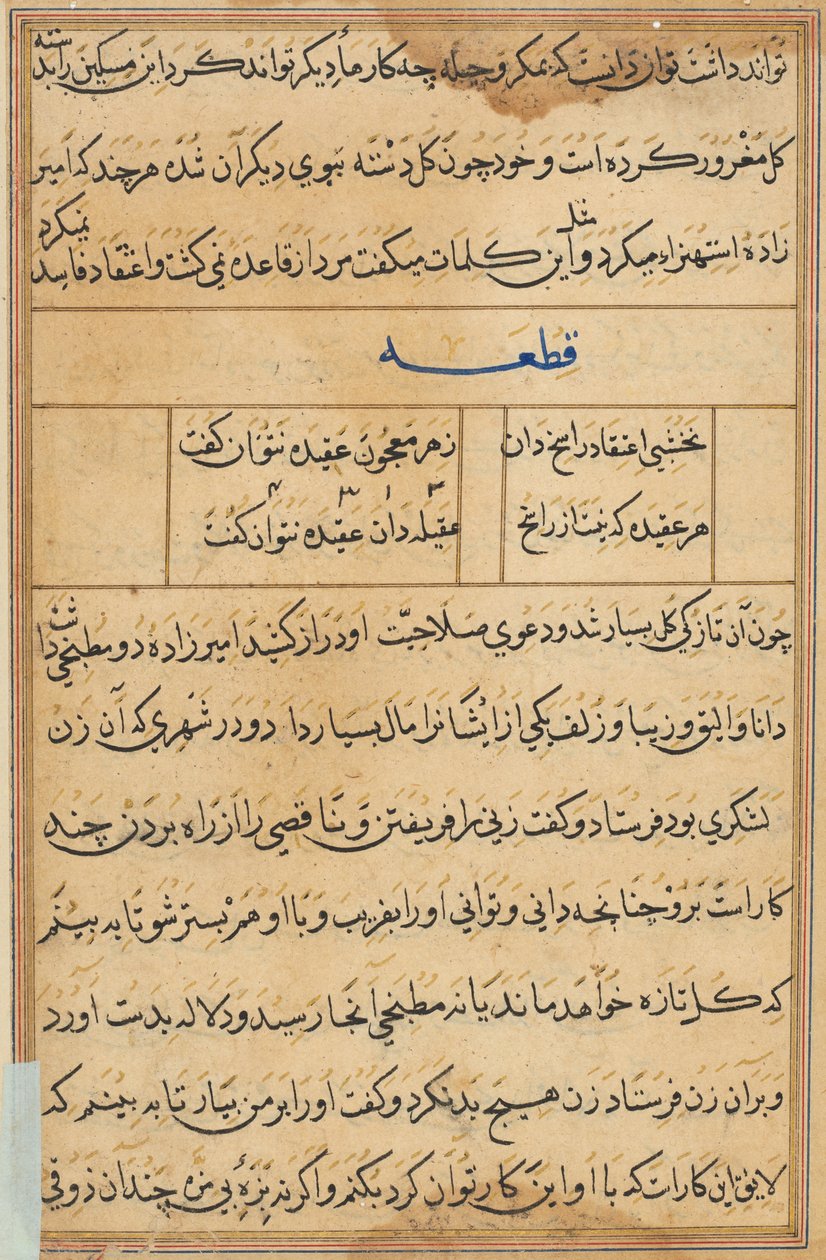 تواند داشت توان دانست که بمکر و حیله چه کارها دیگر تواند کرد این مسکین را بدسته
کل مغرور کرده است و خود چون کل دسته ببوي دیگران شده هر چند که امیر
زاده استهزاء میکرد و این کلمات میکفت مرد از قاعده نمي کشت و اعتقاد فاسد نمیکرد
قطعه
نخشبي اعتقاد راسخ دان
زهر معجون عقیده نتوان کفت
هر عقیده که نیست از راسخ
عقیله دان عقیده نتوان کفت
چون آن تازکي کل بسیار شد و دعوي صلاحیت او دراز کشید امیر زاده دو مطبخي داشت
دانا و الیق و زیبا و زلف یکي از ایشانرا مال بسیار دا دو در شهري که آن زن
لشکري بود فرستاد و کفت زني را فریفتن و ناقصي را از راه بردن چند
کار است برو چنانچه داني و تواني او را بفریب و با او هم بستر شو تا به بینم
که کل تازه خواهد ماند یا نه مطبخي آنجا رسید و دلاله بدست اورد
و بر ان زن فرستاد زن هیچ بد نکرد و کفت او را بر من بیار تا به بینم که
لایق این کار است که با او این کار توان کرد بکنم و اکر نه بزهٔ بي مزه چندان ذوقي